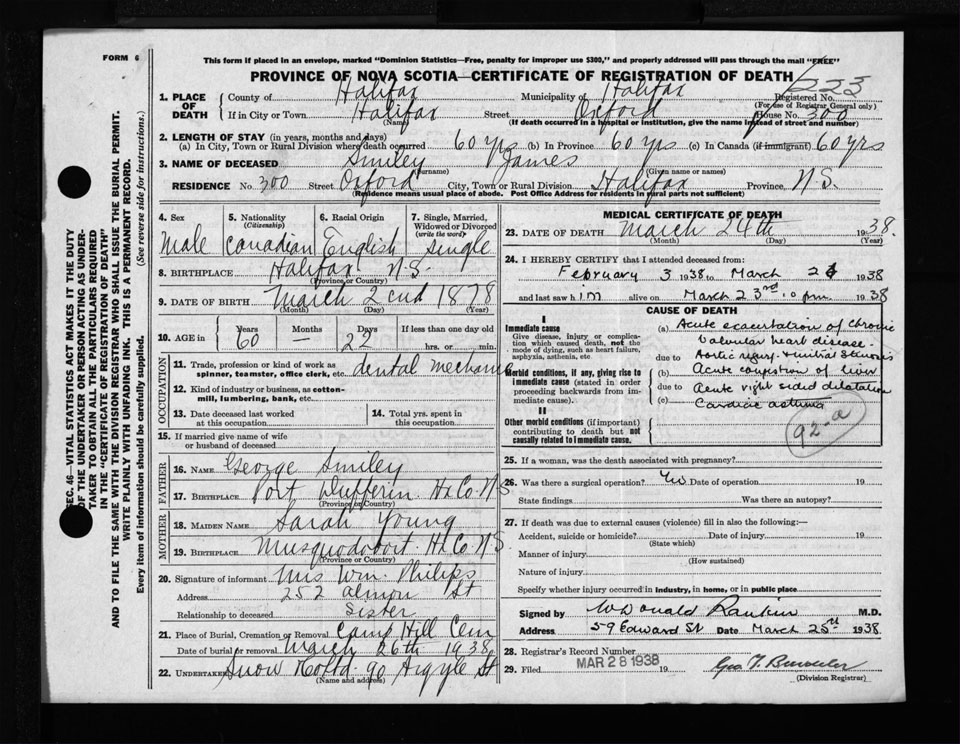 FORM 6
This form if placed in an envelope, marked "Dominion Statistics—Free, penalty for improper use $300," and properly addressed will pass through the mail "FREE"
PROVINCE OF NOVA SCOTIA—CERTIFICATE OF REGISTRATION OF DEATH
223
1. PLACE OF DEATH County of Halifax Municipality of Halifax Registered No.
(For use of Registrar General only)
If in City or Town Halifax Street Oxford House No. 300
(Name) (If death occurred in a hospital or institution, give the name instead of street and number)
2. LENGTH OF STAY (in years, months and days)
(a) In City, Town or Rural Division where death occurred 60 yrs (b) In Province 60 yrs (c) In Canada (if immigrant) 60 yrs
3. NAME OF DECEASED Smiley James
(Surname) (Given name or names)
RESIDENCE No. 300 Street Oxford City, Town or Rural Division Halifax Province N.S.
(Residence means usual place of abode. Post Office Address for residents in rural parts not sufficient)
4. Sex 5. Nationality (Citizenship) 6. Racial Origin 7. Single, Married, Widowed or Divorced (write the word)
Male Canadian English Single
8. BIRTHPLACE Halifax N.S.
(Province or Country)
9. DATE OF BIRTH March 2 1878
(Month) (Day) (Year)
10. AGE in Years Months Days If less than one day
60 — 22 hrs. or min.
OCCUPATION
11. Trade, profession or kind of work as spinner, teamster, office clerk, etc. dental mechanic
12. Kind of industry or business, as cotton-mill, lumbering, bank, etc.
13. Date deceased last worked at this occupation 14. Total yrs. spent in this occupation
15. If married give name of wife or husband of deceased
FATHER
16. NAME George Smiley
17. BIRTHPLACE Port Dufferin Hx Co. N S
(Province or Country)
MOTHER
18. MAIDEN NAME Sarah Young
19. BIRTHPLACE Musquodoboit Hx Co N S.
(Province or Country)
20. Signature of informant Mrs Wm. Philips
Address 252 Almon St
Relationship to deceased Sister
21. Place of Burial, Cremation or Removal Camp Hill Cem
Date of burial or removal March 26th 1938
22. UNDERTAKER Snow 90 Argyle St
(Name and address)
MEDICAL CERTIFICATE OF DEATH
23. DATE OF DEATH March 24th 1938
(Month) (Day) (Year)
24. I HEREBY CERTIFY that I attended deceased from:
February 3 1938 to March 1938
and last saw him alive on March 23rd 10 pm 1938
CAUSE OF DEATH
I
Immediate cause
Give disease, injury or complication which caused death, not the mode of dying, such as heart failure, asphyxia, asthenia, etc
Morbid conditions, if any, giving rise to immediate cause (stated in order proceeding backwards from immediate cause).
II
Other morbid conditions (if important) contributing to death but not causally related to immediate cause.
(a) Acute of chronic
Valvular heart disease.
due to Aortic
(b) Acute congestion of liver
due to Acute right sided dilatation
(c) Cardiac asthma
92-a
25. If a woman, was the death associated with pregnancy?
26. Was there a surgical operation? Date of operation 19
State findings Was there an autopsy?
27. If death was due to external causes (violence) fill in also the following:—
Accident, suicide or homicide? Date of injury 19
(State which)
Manner of injury
(How sustained)
Nature of injury
Specify whether injury occurred in industry, in home, or in public place
Signed by W Donald Rankin M.D.
Address 59 Edward St Date March 25th 1938
28. Registrar's Record Number
29. Filed MAR 28 1938 19
(Division Registrar)
SEC. 46—VITAL STATISTICS ACT MAKES IT THE DUTY
OF THE UNDERTAKER OR PERSON ACTING AS UNDER-
TAKER TO OBTAIN ALL THE PARTICULARS REQUIRED
IN THE "CERTIFICATE OF REGISTRATION OF DEATH"
AND TO FILE THE SAME WITH THE DIVISION REGISTRAR WHO SHALL ISSUE THE BURIAL PERMIT.
WRITE PLAINLY WITH UNFADING INK. THIS IS A PERMANENT RECORD.
Every item of information should be carefully supplied. (See reverse side for instructions.)